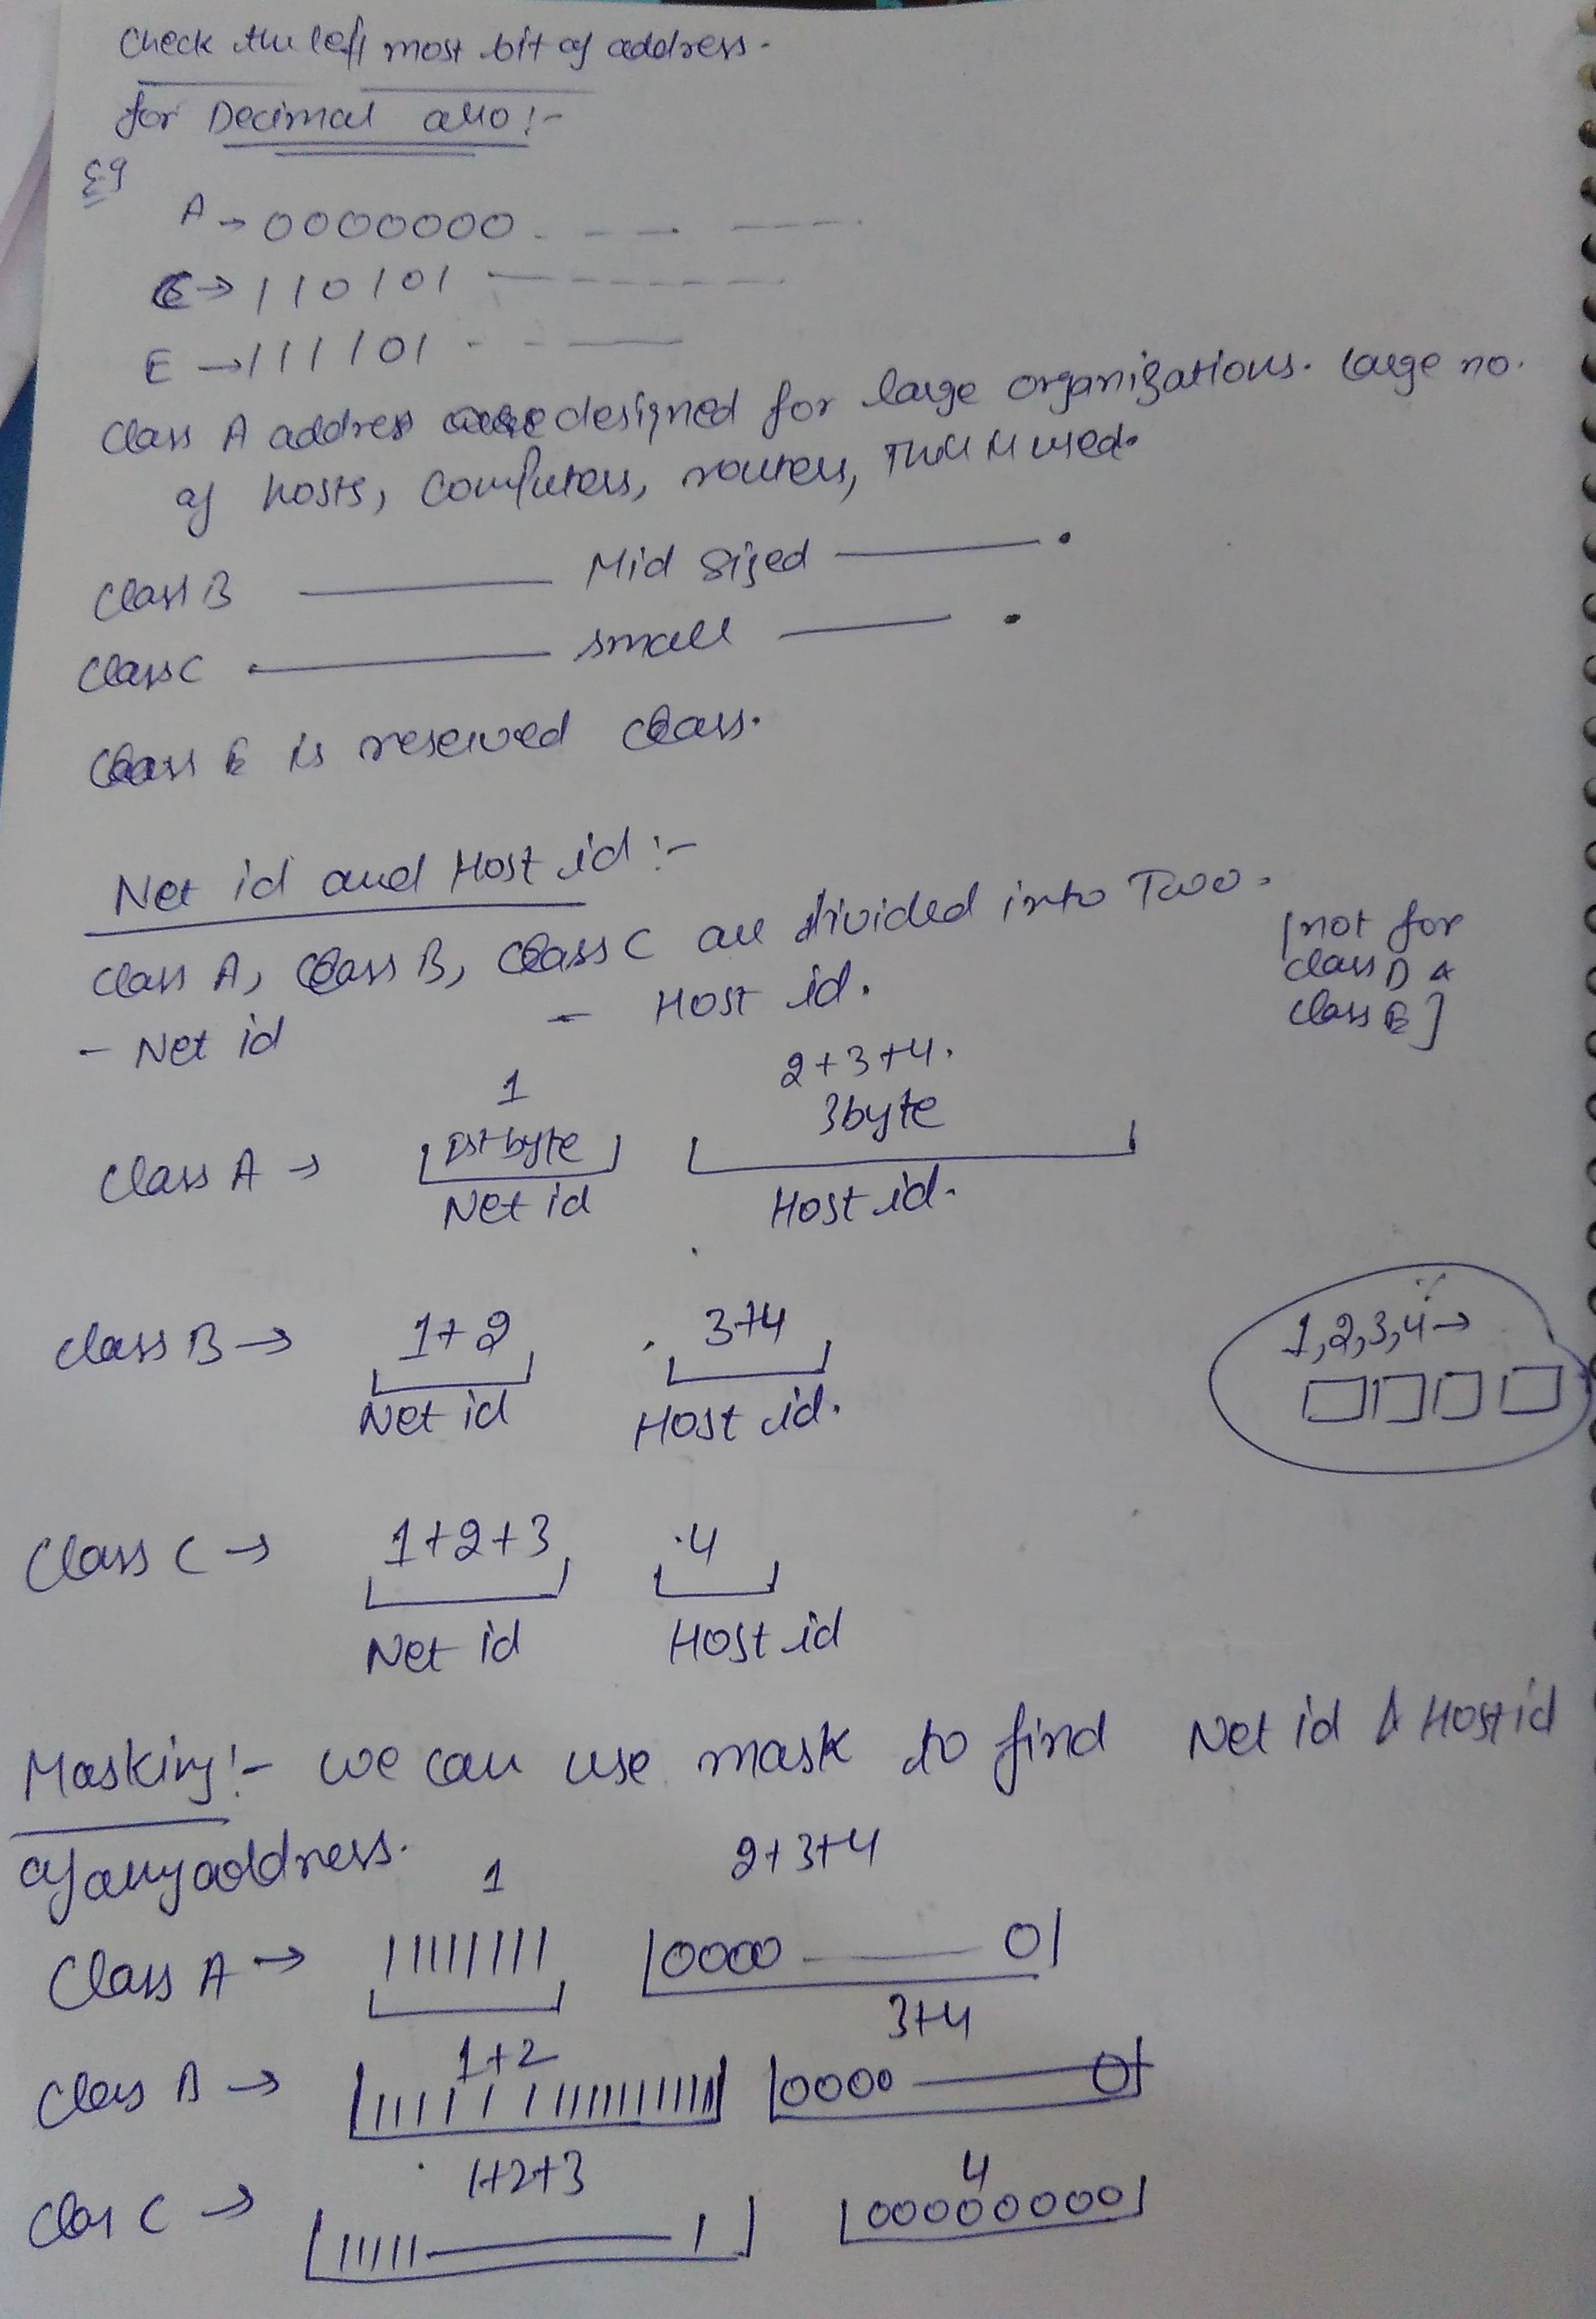 Check the left most bit of address.
for Decimal also :-
Eg
A → 0000000 - - - - ---
C → 110101 — - - - - -
E → 111101 - - —
Class A address are designed for large organizations. Large no.
of hosts, computers, routers, This is used.
Class B ——— Mid sized ——— .
Class C ——— small ——— .
Class E is reserved class.
Net id and Host id :-
Class A, Class B, Class C are divided into Two.
[not for
class D &
class E]
- Net id - Host id.
1 2+3+4.
1st byte 3byte
Class A →
Net id Host id.
Class B → 1+2 3+4
Net id Host id.
1,2,3,4 →
Class C → 1+2+3 4
Net id Host id
Masking :- we can use mask to find Net id & Host id
of any address.
1 2+3+4
Class A → 11111111 0000 ——— 0
1+2 3+4
Class B → 1111111111111111 0000 ——— 0
1+2+3 4
Class C → 11111 ——— 1 00000000